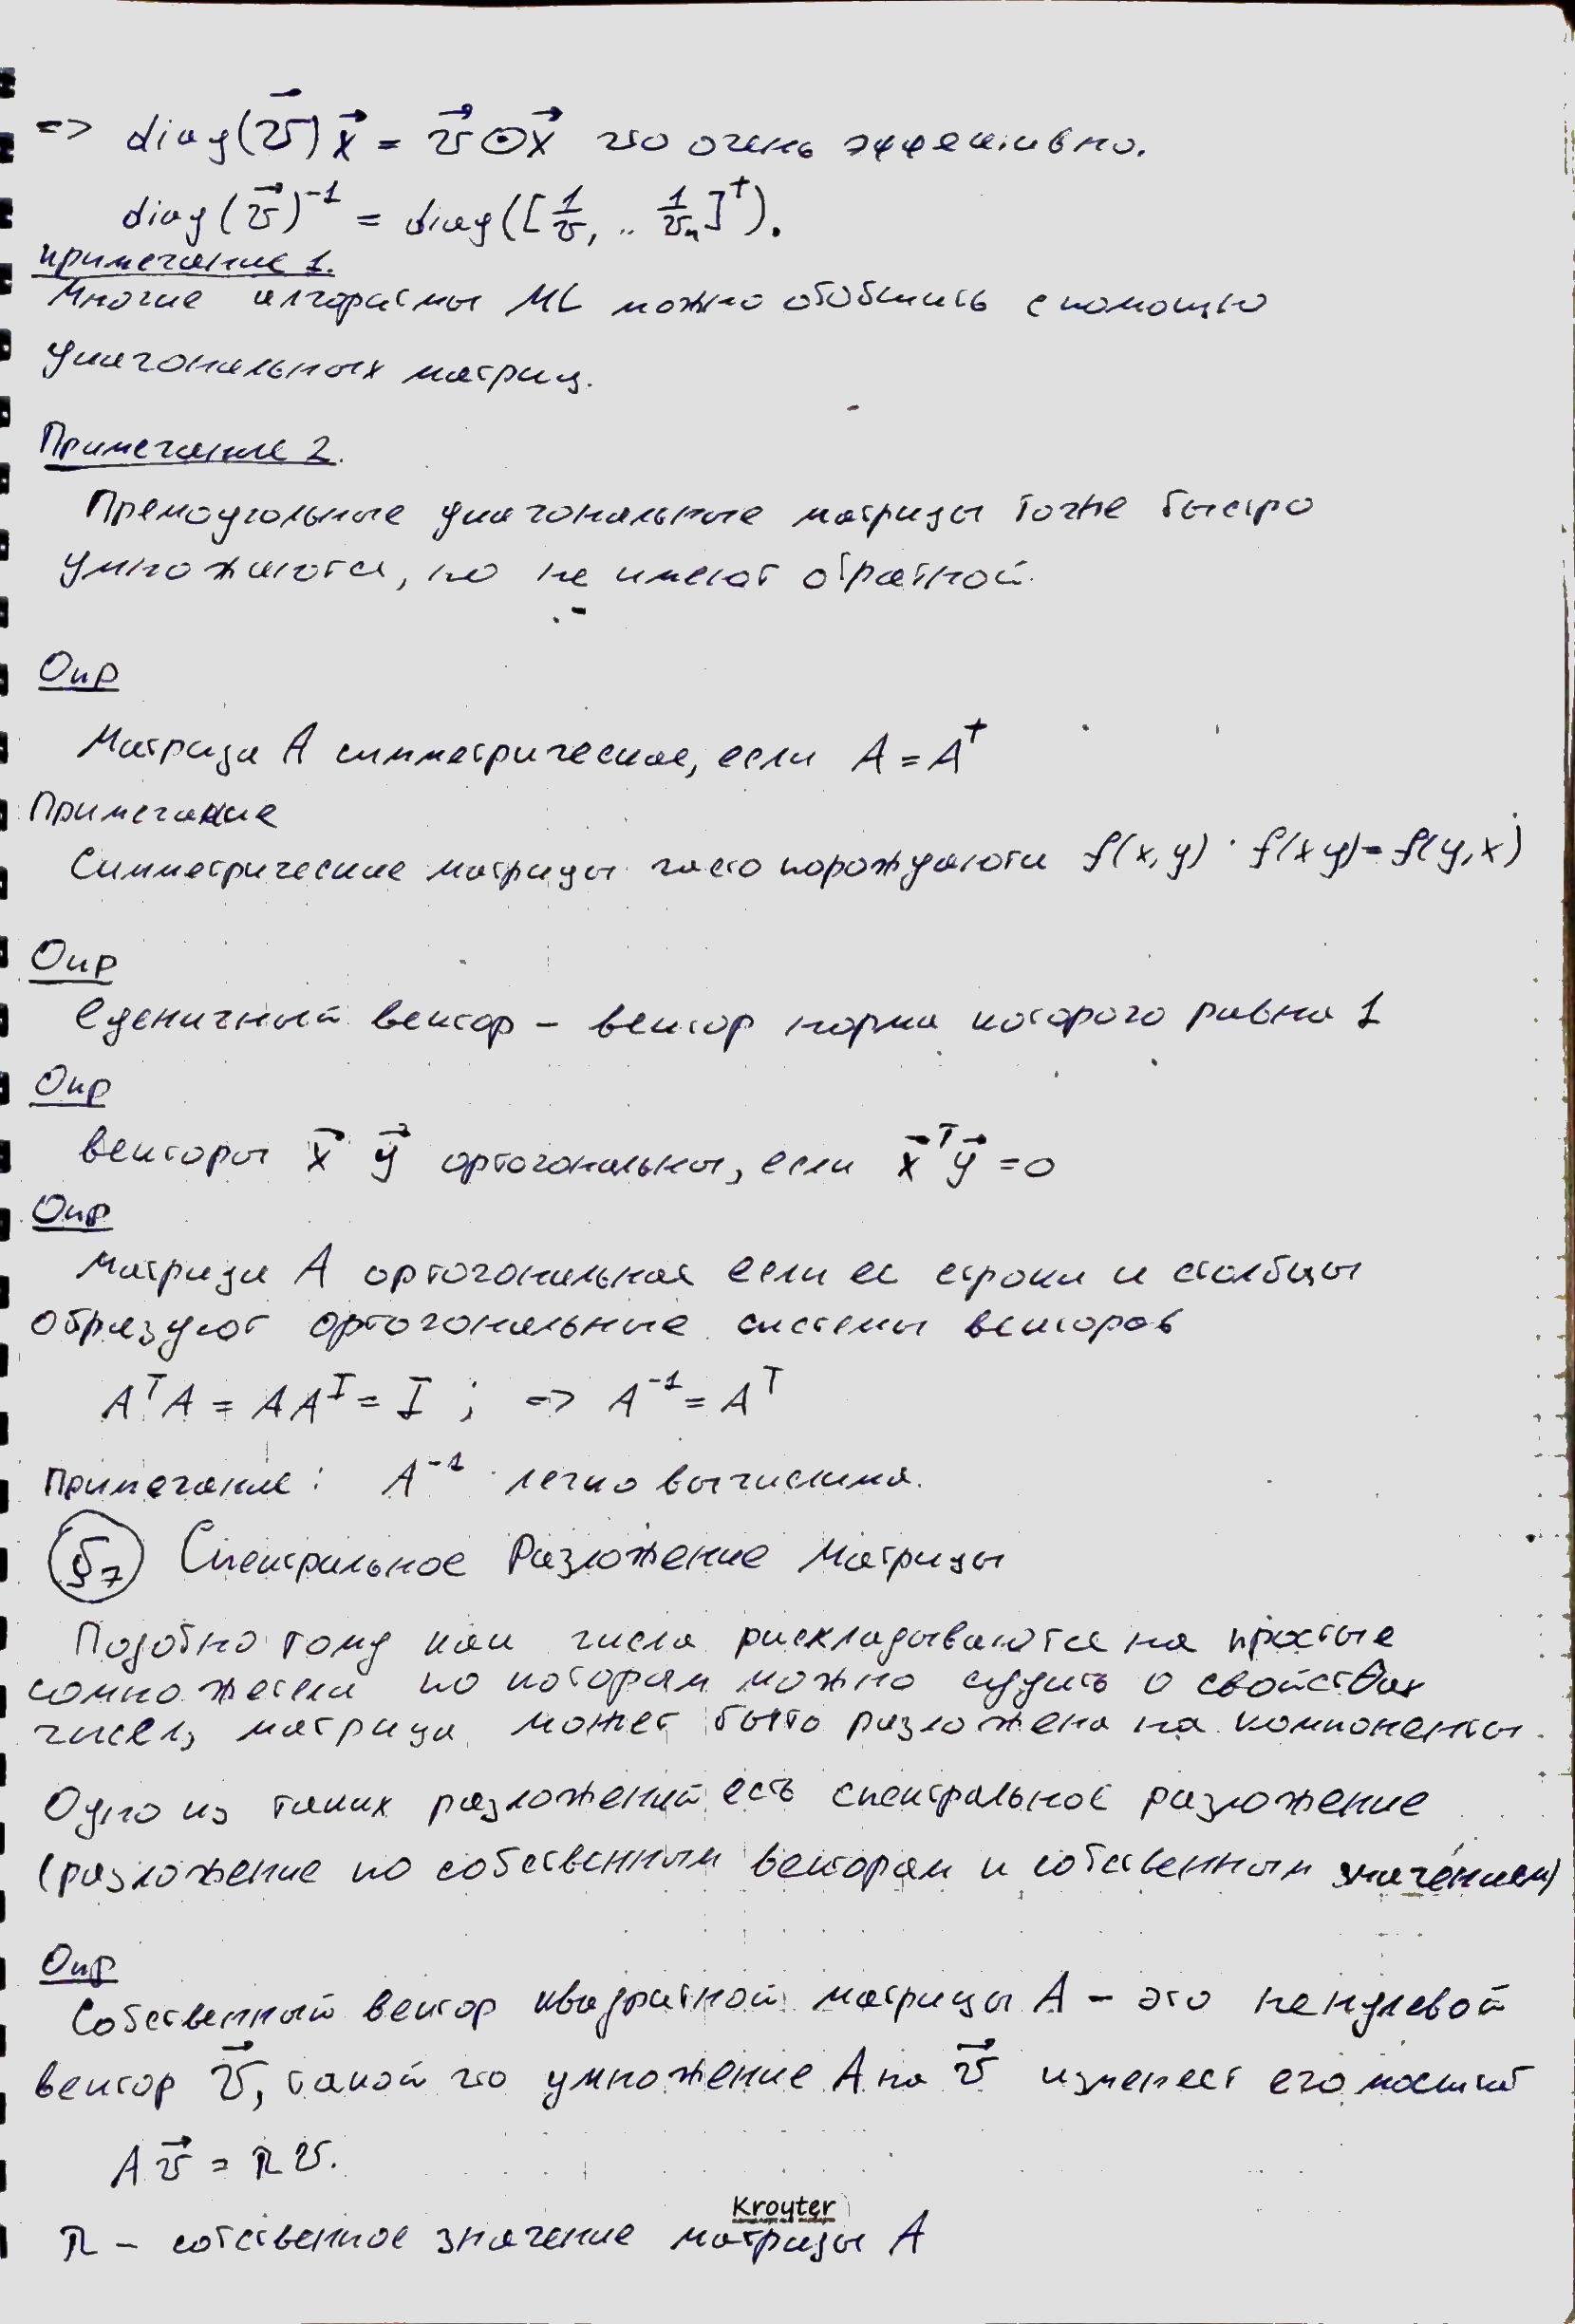 => diag(v⃗)x⃗ = v⃗ ⊙ x⃗ что очень эффективно.
diag(v⃗)⁻¹ = diag([1/v₁ .. 1/vₙ]ᵀ).
примечание 1.
Многие алгоритмы ML можно обобщить с помощью
диагональных матриц.
Примечание 2.
Прямоугольные диагональные матрицы тоже быстро
умножаются, но не имеют обратной.
Опр
Матрица A симметрическая, если A = Aᵀ
Примечание
Симметрические матрицы часто порождаются f(x,y) · f(x y) = f(y,x)
Опр
Еденичный вектор – вектор норма которого равна 1
Опр
векторы x⃗ y⃗ ортогональны, если x⃗ᵀy⃗ = 0
Опр
Матрица A ортогональная если ее строки и столбцы
образуют ортогональные системы векторов
AᵀA = AAᵀ = I ; => A⁻¹ = Aᵀ
Примечание: A⁻¹ легко вычислима.
§7 Спектральное Разложение Матрицы
Подобно тому как числа раскладываются на простые
сомножетели по которам можно судить о свойствах
чисел, матрица может быть разложена на компоненты.
Одно из таких разложений есть спектральное разложение
(разложение по собственным векторам и собственным значениям)
Опр
Собственный вектор квадратной матрицы A – это ненулевой
вектор v⃗, такой что умножение A на v⃗ изменяет его масштаб
A v⃗ = λ v.
Kroyter
λ – собственное значение матрицы A